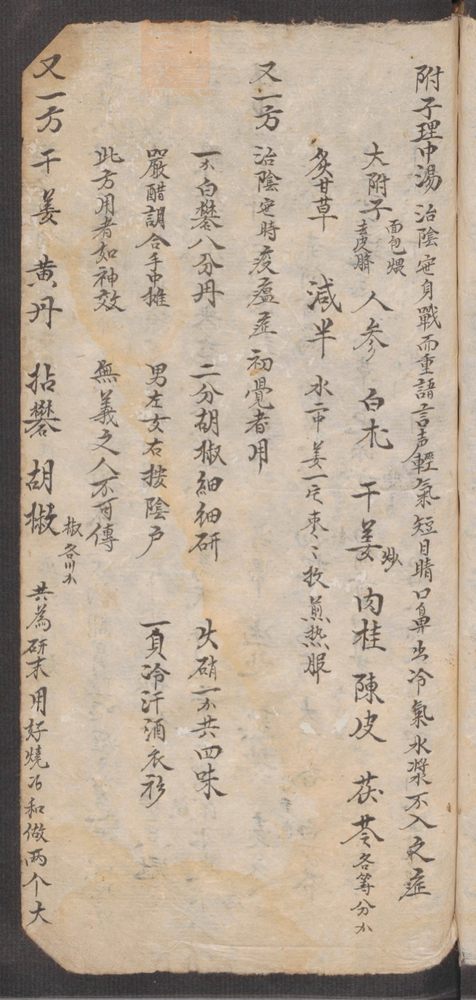 附子理中湯 治陰症身戰而重語言声輕氣短目睛口鼻出冷氣水漿不入之症
大附子 面包煨 去皮臍 人参 白朮 干姜 炒 肉桂 陳皮 茯苓 各等分
炙甘草 減半 水二中姜一片枣二枚煎热服
又一方 治陰症時疫瘟症初覺者用
一个白礬八分丹 二分胡椒細細研 火硝一个共四味
嚴醋調合手中摊 男左女右按陰户 一貟冷汗洒衣衫
此方用者如神效 無義之人不可傳
又一方 干姜 黄丹 拈礬 胡椒 椒各 共為研末用好燒酒和做两个大